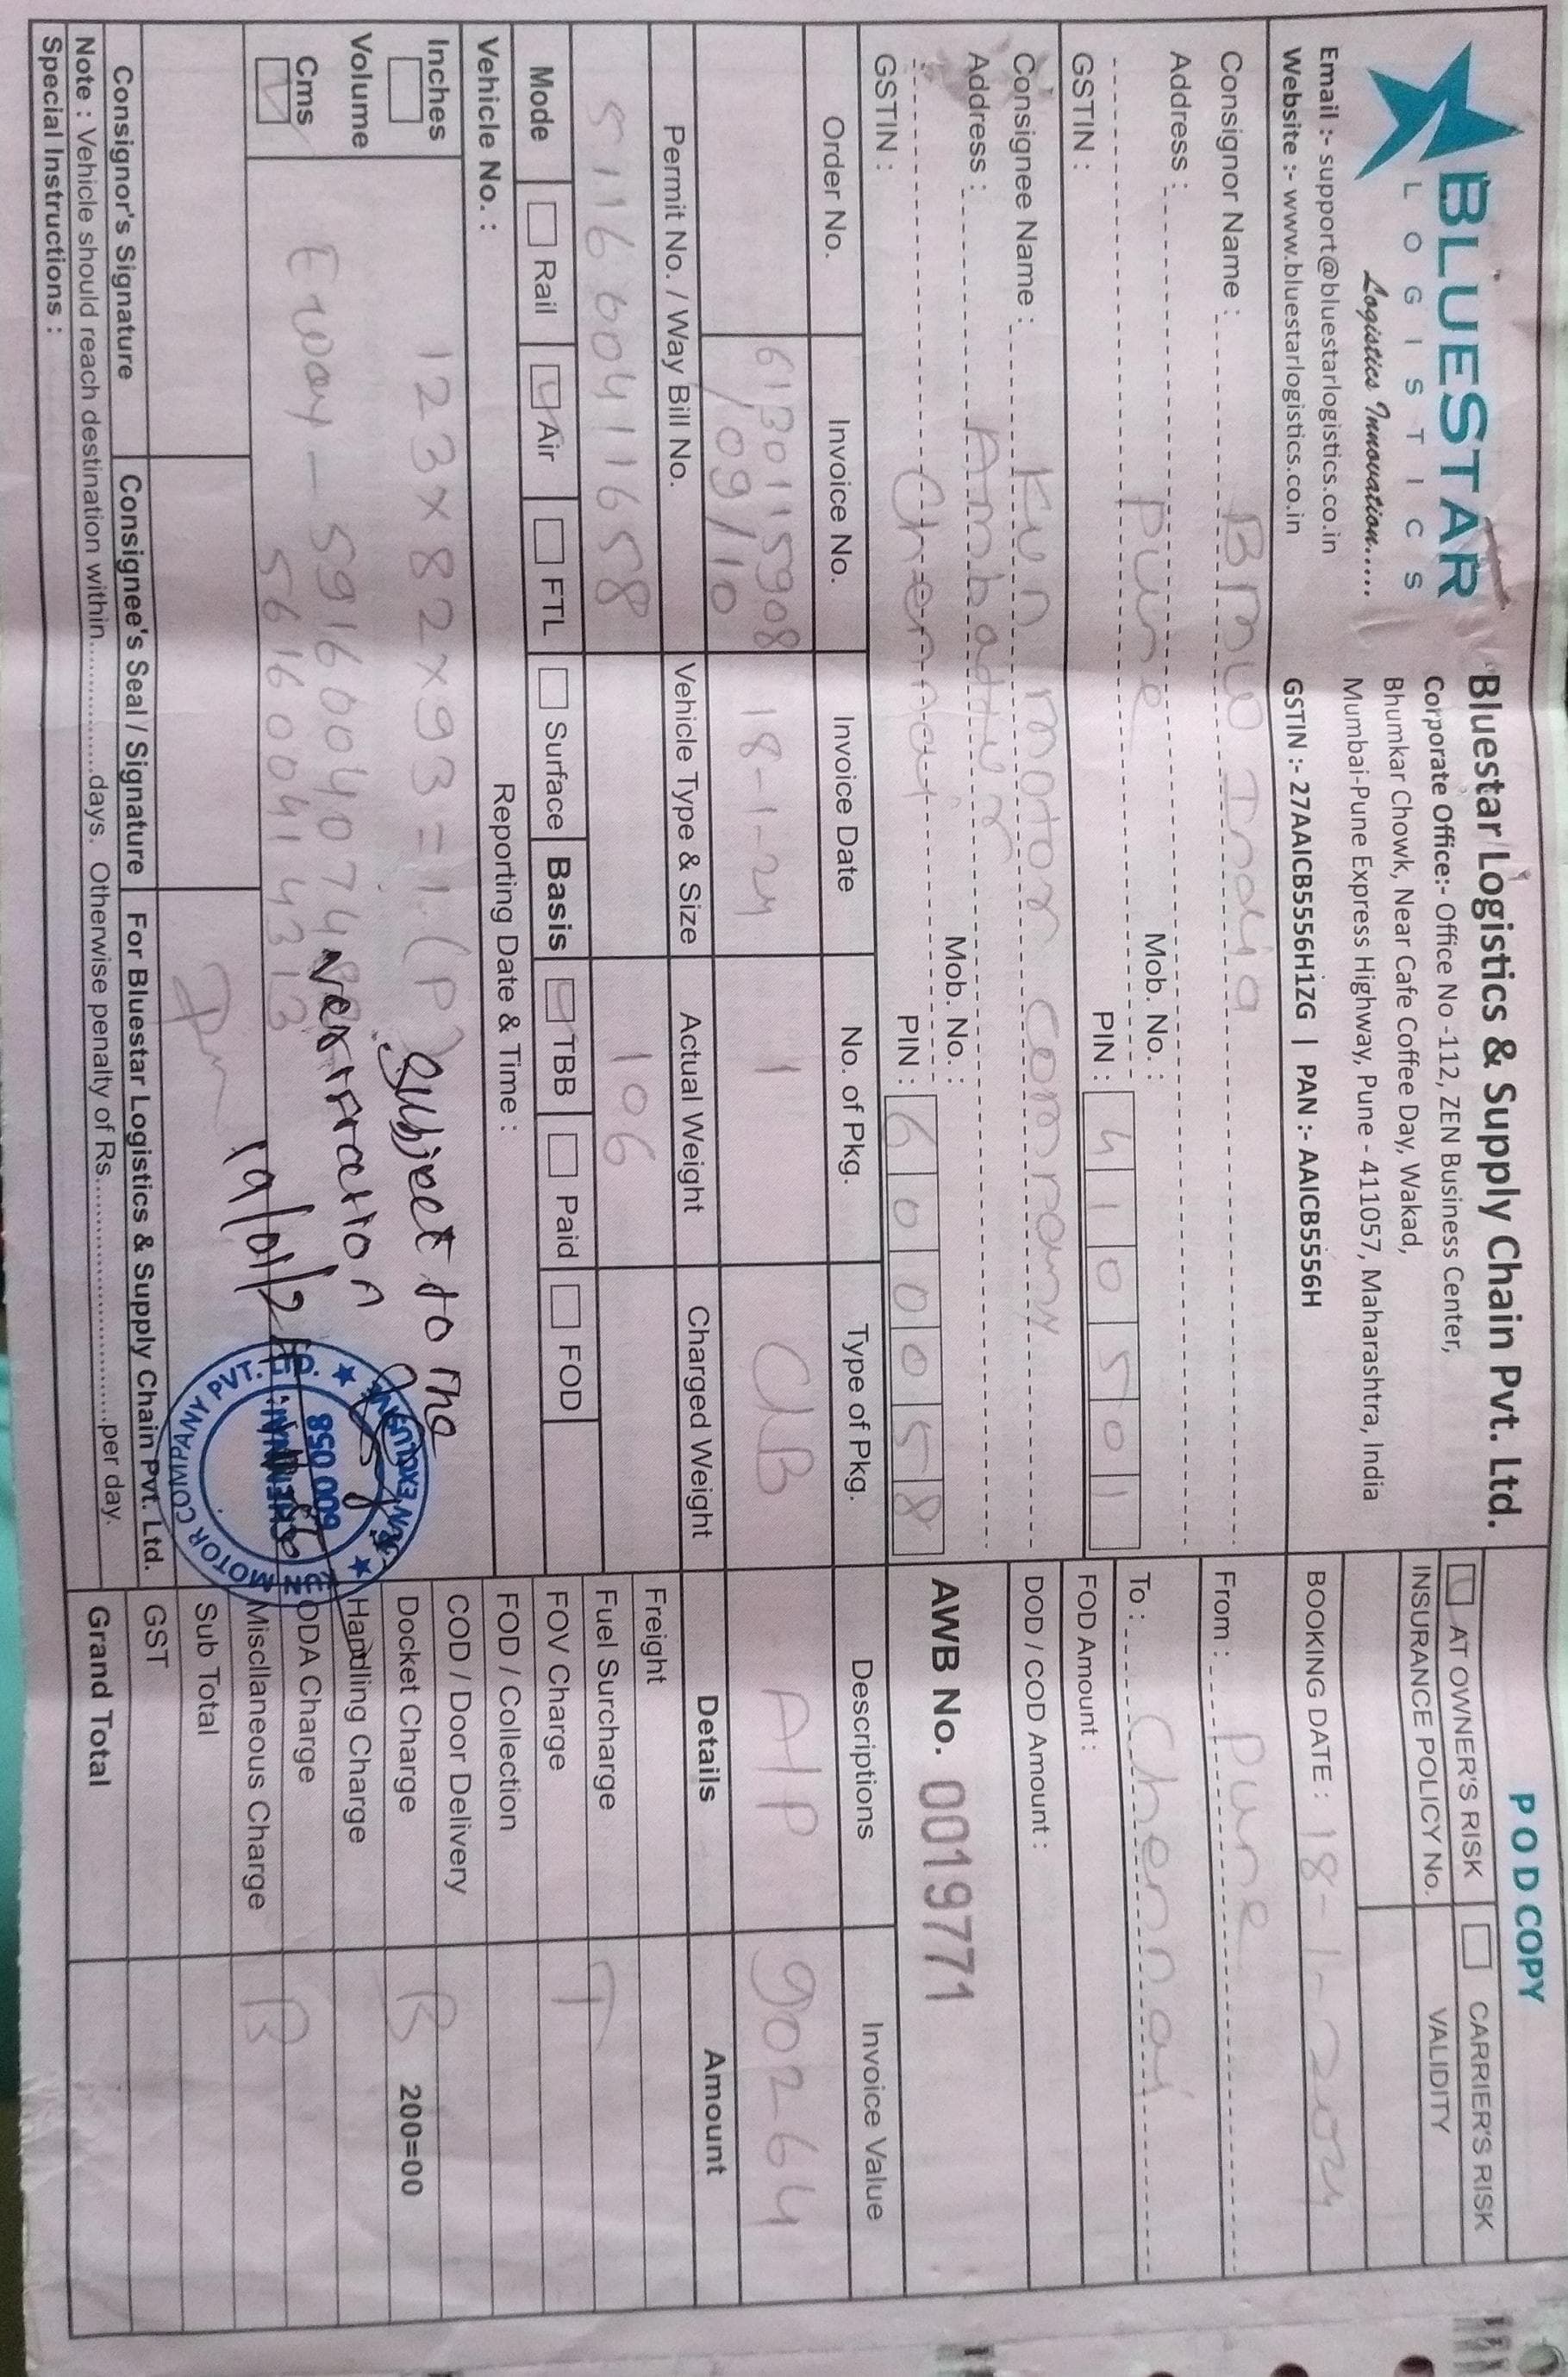 BLUESTAR
LOGISTICS
Logistics Innovation.....
Email :- support@bluestarlogistics.co.in
Website :- www.bluestarlogistics.co.in
Bluestar Logistics & Supply Chain Pvt. Ltd.
Corporate Office:- Office No -112, ZEN Business Center,
Bhumkar Chowk, Near Cafe Coffee Day, Wakad,
Mumbai-Pune Express Highway, Pune - 411057, Maharashtra, India
GSTIN :- 27AAICB5556H1ZG | PAN :- AAICB5556H
POD COPY
AT OWNER'S RISK CARRIER'S RISK
INSURANCE POLICY No. VALIDITY
BOOKING DATE : 18-1-2024
Consignor Name : BMW India
Address :
Pune Mob. No. :
GSTIN : PIN : 410501
From : Pune
To : Chennai
FOD Amount :
DOD / COD Amount :
Consignee Name : Kun motor company
Address : Ambattur
Chennai Mob. No. :
GSTIN : PIN : 600058
AWB No. 0019771
Order No. Invoice No. Invoice Date No. of Pkg. Type of Pkg. Descriptions Invoice Value
6130115908 18-1-24 1 C/B A/P 90264
/09/10
Permit No. / Way Bill No. Vehicle Type & Size Actual Weight Charged Weight Details Amount
511600411658 106
Mode Rail Air FTL Surface Basis TBB Paid FOD
Vehicle No. : Reporting Date & Time :
Freight
Fuel Surcharge T
FOV Charge
FOD / Collection
COD / Door Delivery
Docket Charge B 200=00
Handling Charge
ODA Charge
Miscllaneous Charge B
Sub Total
GST
Grand Total
Inches
Volume
Cms
123x82x93=1(P)
Subject to the
verification
Eway - 5916004074
561600414313
19/01/2
KUN EXCLUSIVE
KUN MOTOR COMPANY PVT. LTD.
CHENNAI
600 058
Consignor's Signature Consignee's Seal / Signature For Bluestar Logistics & Supply Chain Pvt. Ltd.
Note : Vehicle should reach destination within................days. Otherwise penalty of Rs..............................per day.
Special Instructions :